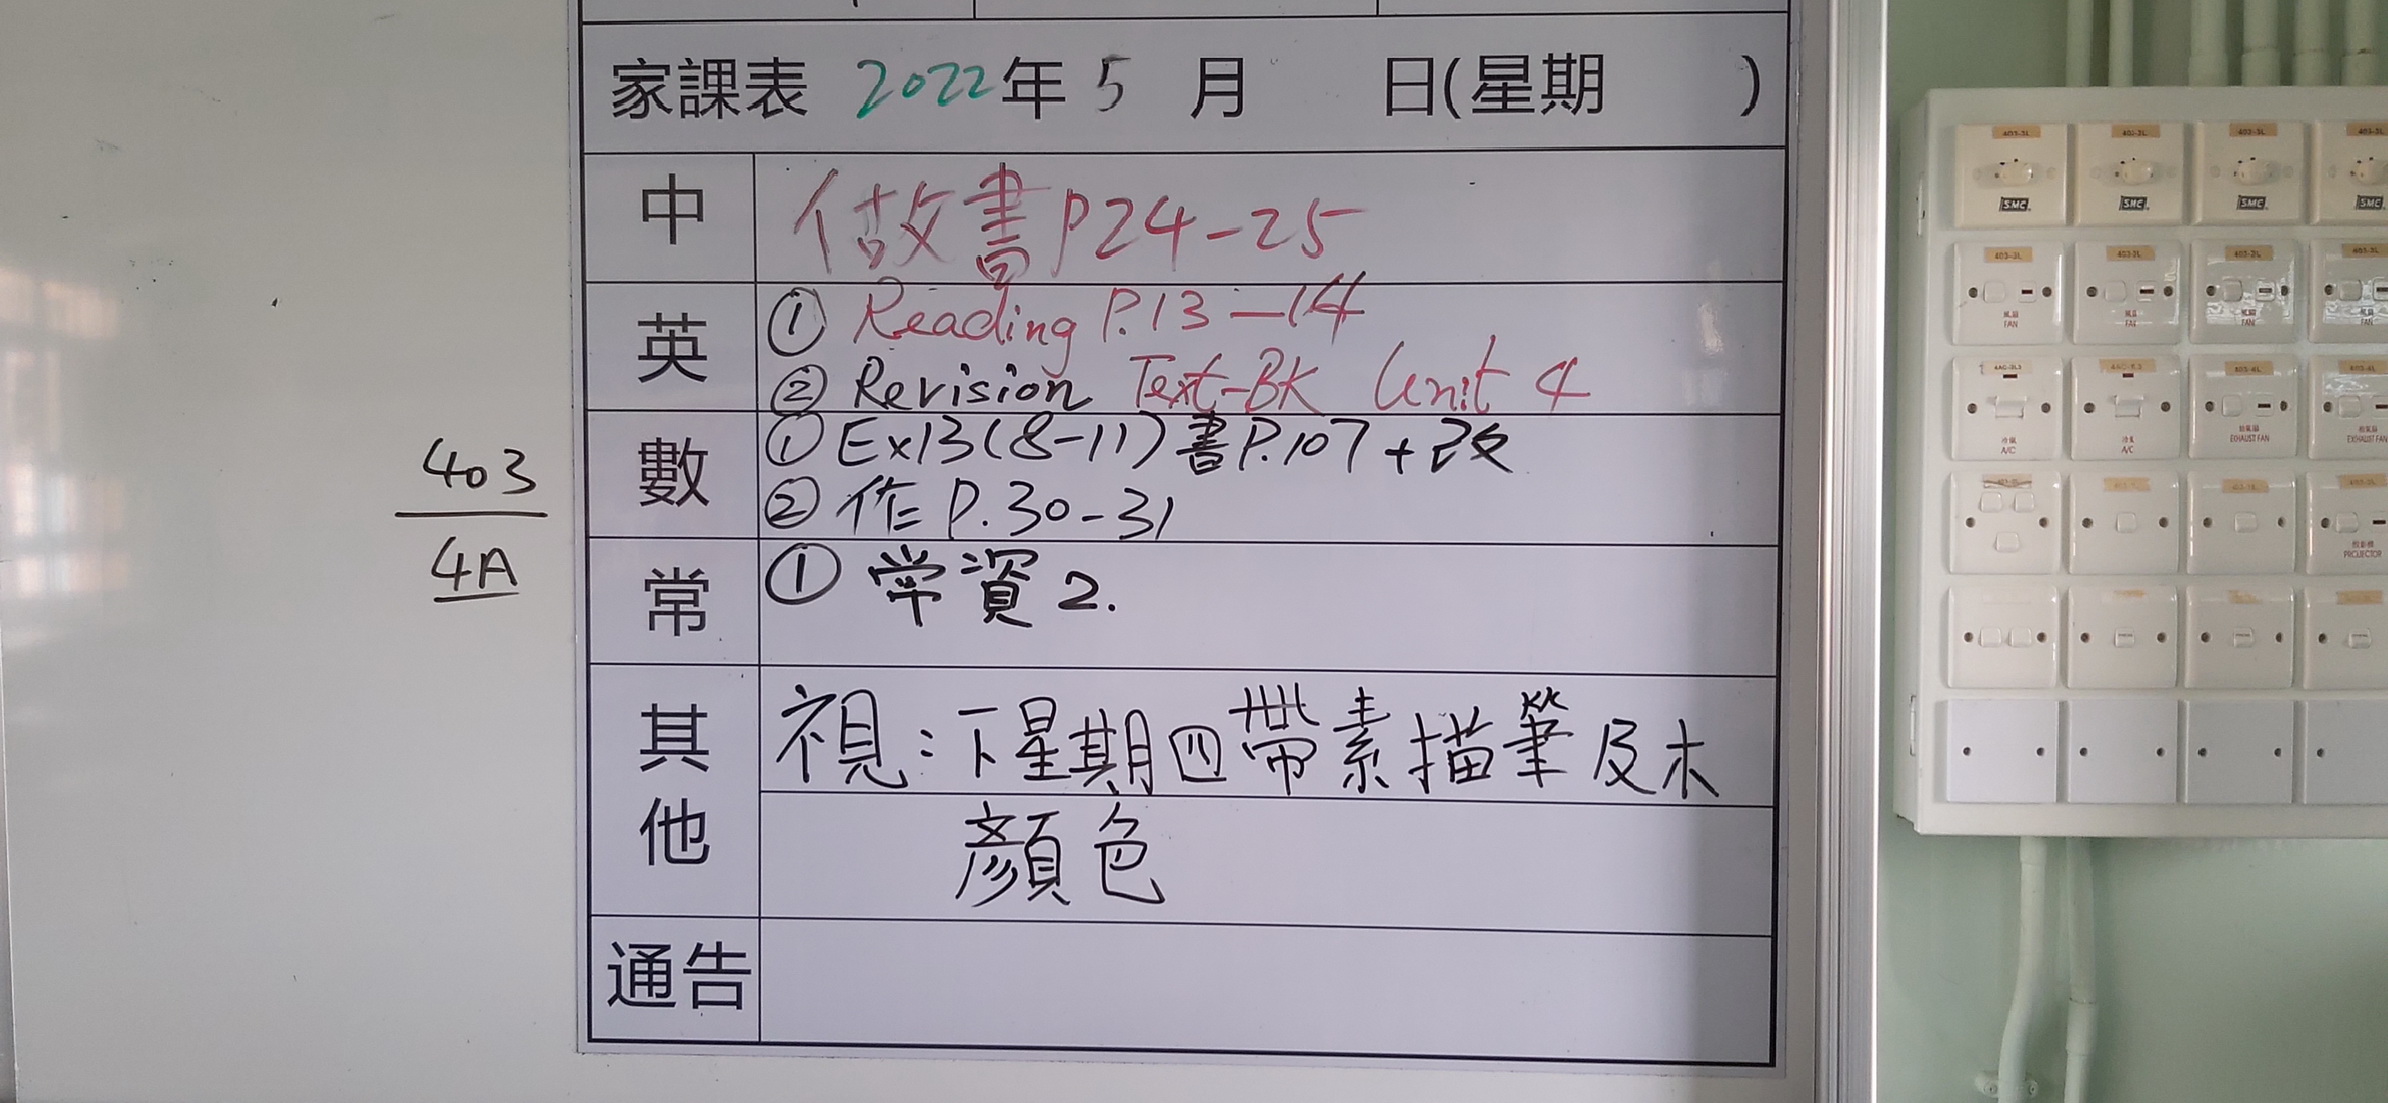 家課表 2022年 5 月 日(星期 )
中 做書P24-25
英 ① Reading P.13-14
② Revision Text-BK Unit 4
數 ① Ex13(8-11)書P.107+改
② 作 P.30-31
常 ① 常資2.
其他 視:下星期四帶素描筆及木
顏色
通告
403
4A
SMC
SMC
SMC
SMC
風扇
FAN
風扇
FAN
風扇
FAN
風扇
FAN
冷氣
A/C
冷氣
A/C
抽氣扇
EXHAUST FAN
抽氣扇
EXHAUST FAN
投影機
PROJECTOR